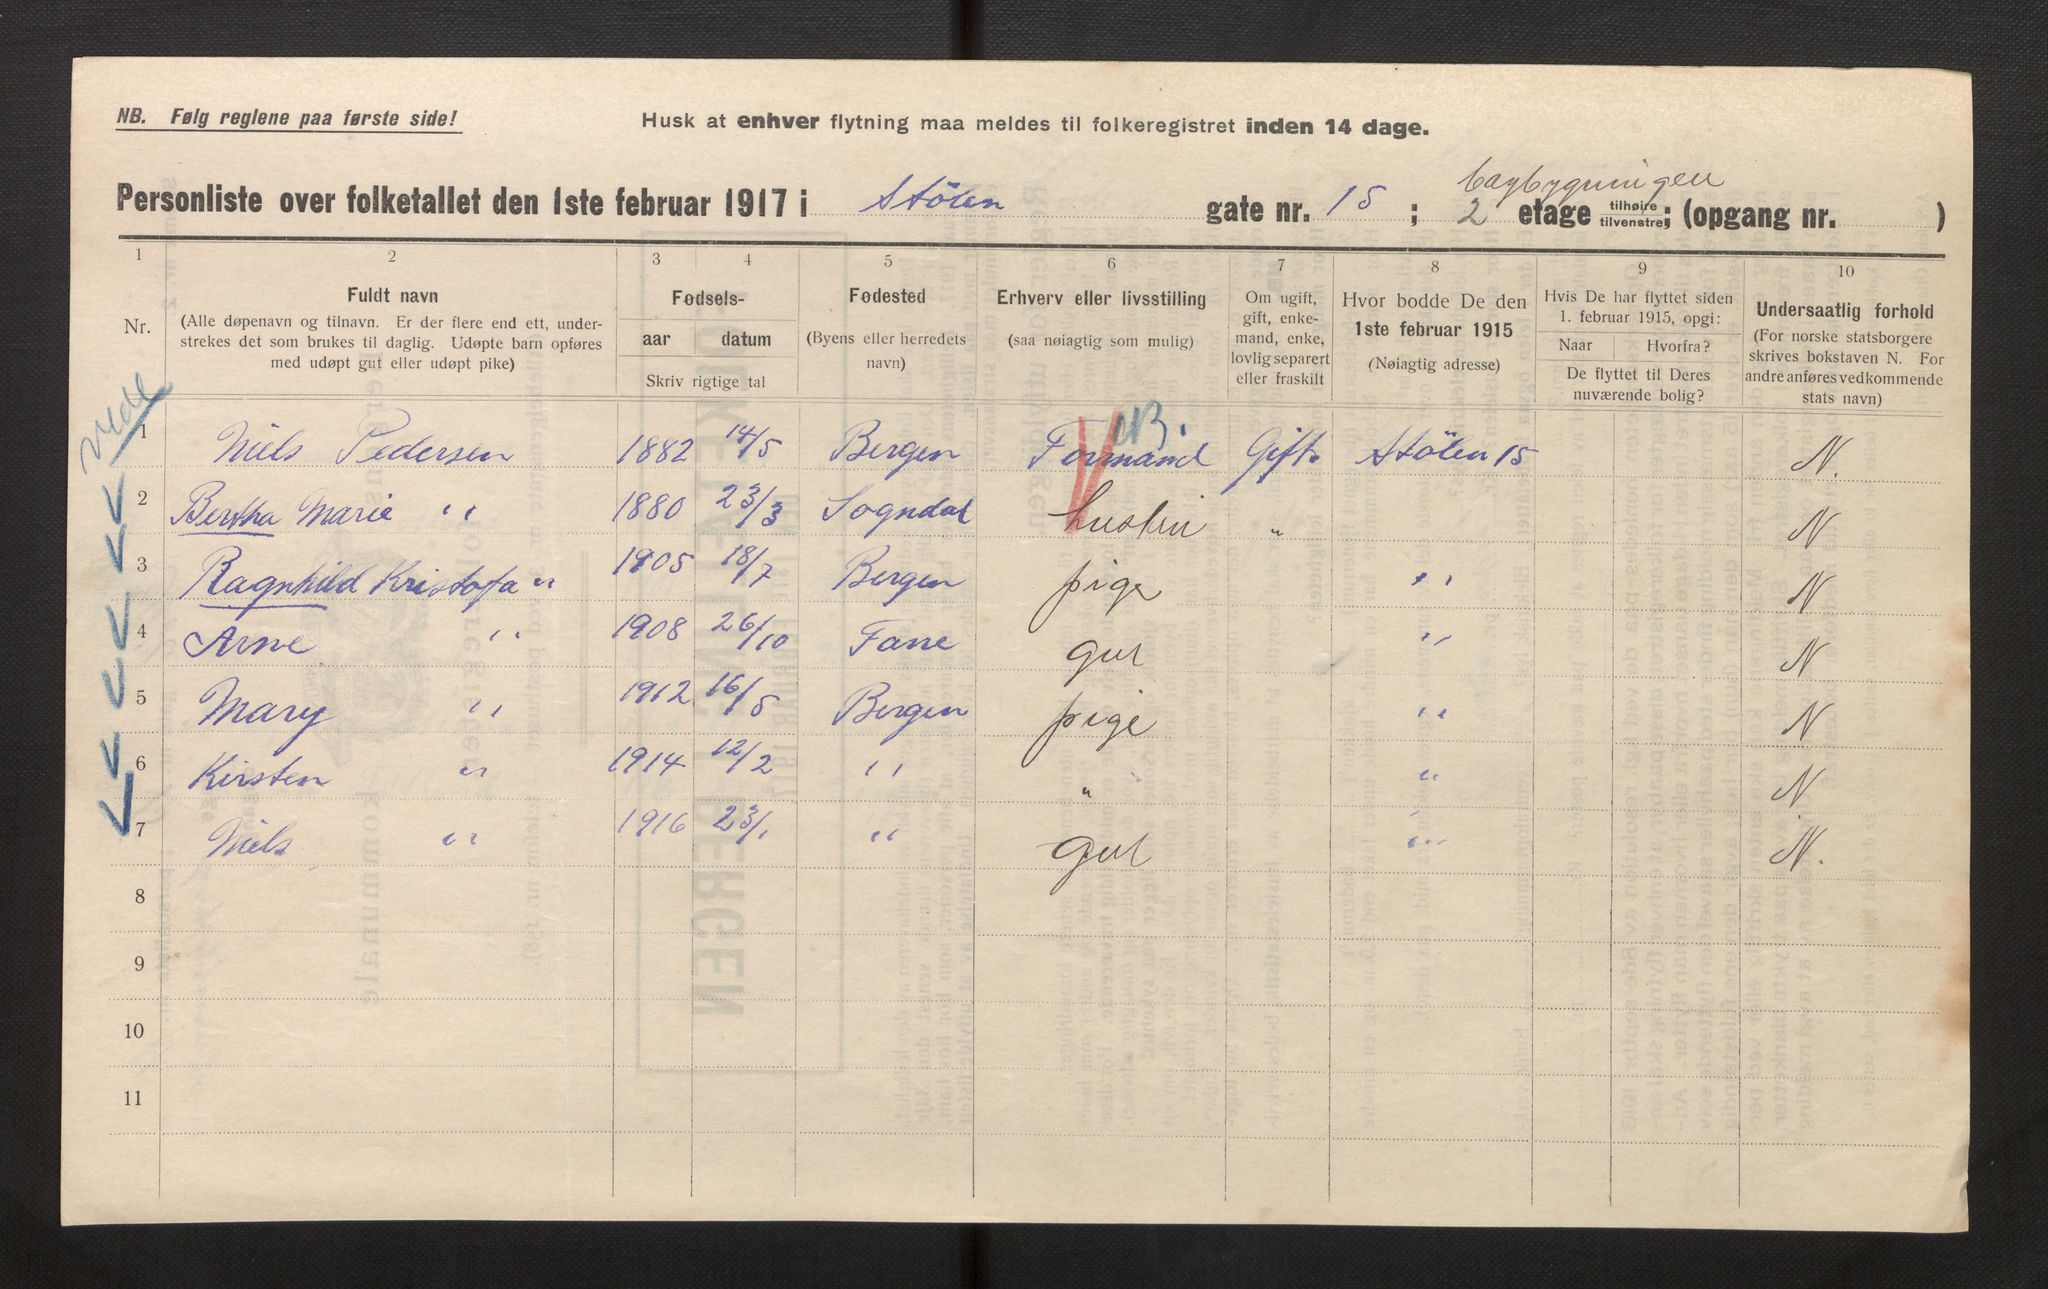 NB. Følg reglene paa første side!
Husk at enhver flytning maa meldes til folkeregistret inden 14 dage.
bagbygningen
Personliste over folketallet den 1ste februar 1917 i Stölen gate nr. 15; 2 etage tilhøire tilvenstre; (opgang nr. )
1 2 3 4 5 6 7 8 9 10
Nr.
Fuldt navn
(Alle døpenavn og tilnavn. Er der flere end ett, under-
strekes det som brukes til daglig. Udøpte barn opføres
med udøpt gut eller udøpt pike)
Fødsels-
aar datum
Skriv rigtige tal
Fødested
(Byens eller herredets
navn)
Erhverv eller livsstilling
(saa nøiagtig som mulig)
Om ugift,
gift, enke-
mand, enke,
lovlig separert
eller fraskilt
Hvor bodde De den
1ste februar 1915
(Nøiagtig adresse)
Hvis De har flyttet siden
1. februar 1915, opgi:
Naar Hvorfra?
De flyttet til Deres
nuværende bolig?
Undersaatlig forhold
(For norske statsborgere
skrives bokstaven N. For
andre anføres vedkommende
stats navn)
NB.
1 Niels Pedersen 1882 14/5 Bergen Formand Gift Stölen 15 N.
2 Bertha Marie " 1880 23/3 Sogndal hustru " N
3 Ragnhild Kristofa " 1905 18/7 Bergen pige " N
4 Arne " 1908 26/10 Fane gut " N
5 Mary " 1912 16/5 Bergen pige " N
6 Kirsten " 1914 12/2 " " " N
7 Niels " 1916 23/1 " gut " N.
8
9
10
11